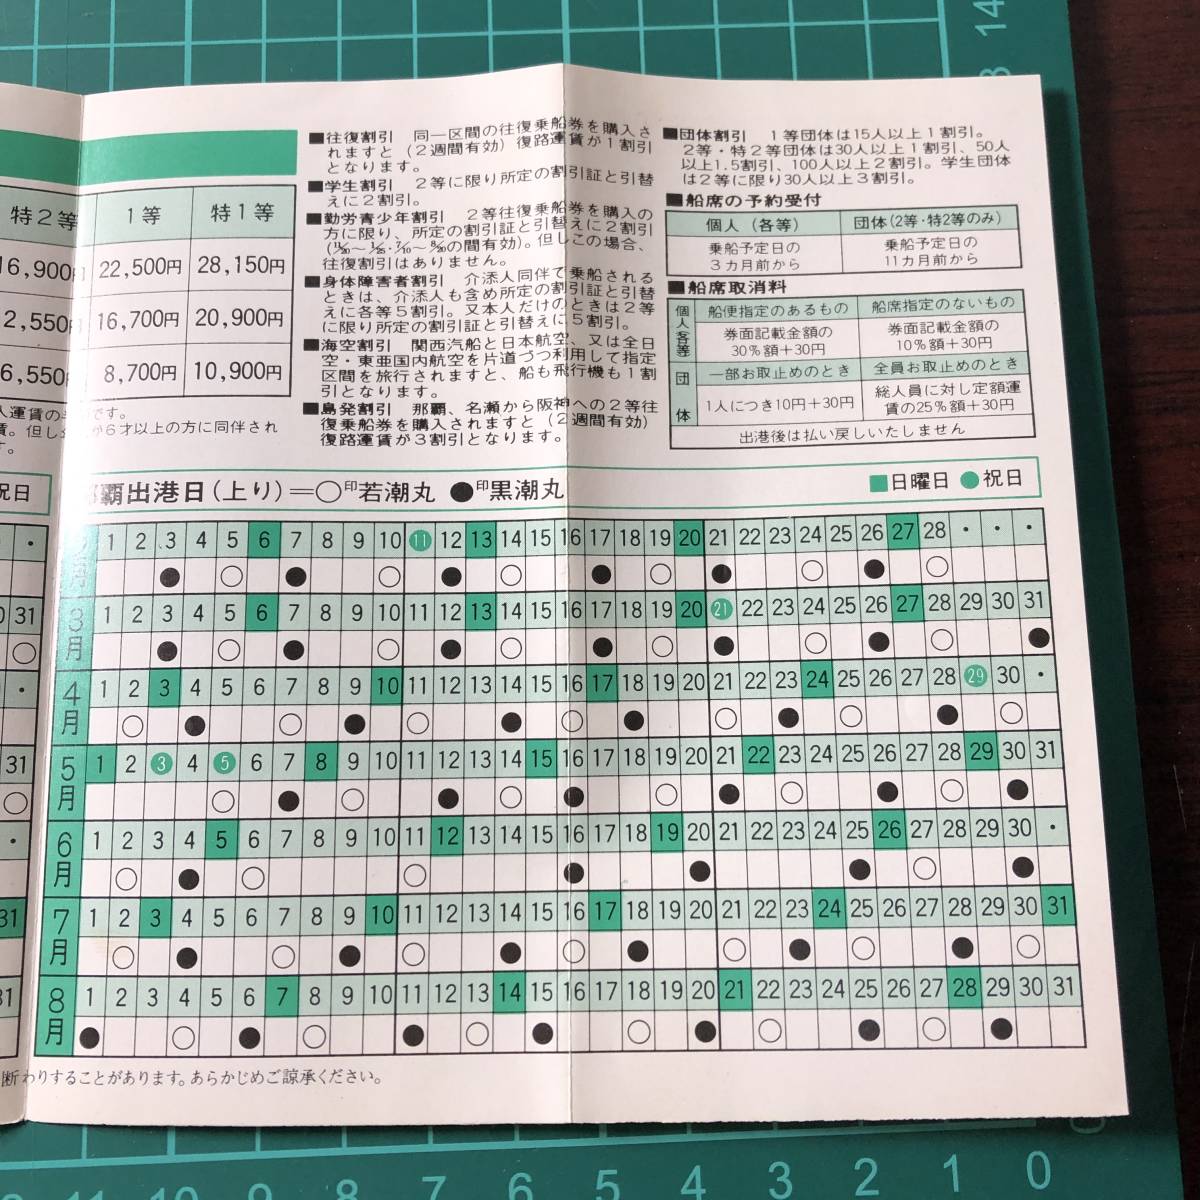 特2等 1等 特1等
16,900円 22,500円 28,150円
2,550円 16,700円 20,900円
6,550円 8,700円 10,900円
です。
が6才以上の方に同伴され
す。
■往復割引 同一区間の往復乗船券を購入さ
れますと(2週間有効)復路運賃が1割引
となります。
■学生割引 2等に限り所定の割引証と引替
えに2割引。
■勤労青少年割引 2等往復乗船券を購入の
方に限り、所定の割引証と引替えに2割引
の間有効)。但しこの場合、
往復割引はありません。
■身体障害者割引 介添人同伴で乗船される
ときは、介添人も含め所定の割引証と引替
えに各等5割引。又本人だけのときは2等
に限り所定の割引証と引替えに5割引。
■海空割引 関西汽船と日本航空、又は全日
空・東亜国内航空を片道づつ利用して指定
区間を旅行されますと、船も飛行機も1割
引となります。
■島発割引 那覇、名瀬から阪神への2等往
復乗船券を購入されますと(2週間有効)
復路運賃が3割引となります。
■団体割引 1等団体は15人以上1割引。
2等・特2等団体は30人以上1割引、50人
以上1.5割引、100人以上2割引。学生団体
は2等に限り30人以上3割引。
■船席の予約受付
個人(各等) 団体(2等・特2等のみ)
乗船予定日の 乗船予定日の
3カ月前から 11カ月前から
■船席取消料
個人各等 船便指定のあるもの 船席指定のないもの
券面記載金額の 券面記載金額の
30%額+30円 10%額+30円
団体 一部お取止めのとき 全員お取止めのとき
1人につき10円+30円 総人員に対し定額運
賃の25%額+30円
出港後は払い戻しいたしません
祝日
覇出港日(上り)=○印若潮丸 ●印黒潮丸 ■日曜日 ●祝日
1 2 3 4 5 6 7 8 9 10 11 12 13 14 15 16 17 18 19 20 21 22 23 24 25 26 27 28 ・ ・ ・
● ○ ● ○ ● ○ ● ○ ● ○ ● ○
31 3月 1 2 3 4 5 6 7 8 9 10 11 12 13 14 15 16 17 18 19 20 21 22 23 24 25 26 27 28 29 30 31
○ ● ○ ● ○ ● ○ ● ○ ● ○ ● ○ ●
・ 4月 1 2 3 4 5 6 7 8 9 10 11 12 13 14 15 16 17 18 19 20 21 22 23 24 25 26 27 28 29 30 ・
○ ● ○ ● ○ ● ○ ● ○ ● ○ ● ○
31 5月 1 2 3 4 5 6 7 8 9 10 11 12 13 14 15 16 17 18 19 20 21 22 23 24 25 26 27 28 29 30 31
○ ○ ● ○ ● ○ ● ○ ● ○ ● ○ ●
・ 6月 1 2 3 4 5 6 7 8 9 10 11 12 13 14 15 16 17 18 19 20 21 22 23 24 25 26 27 28 29 30 ・
○ ● ○ ○ ● ● ● ○ ●
31 7月 1 2 3 4 5 6 7 8 9 10 11 12 13 14 15 16 17 18 19 20 21 22 23 24 25 26 27 28 29 30 31
○ ● ○ ● ○ ● ○ ● ○ ● ○ ● ○
31 8月 1 2 3 4 5 6 7 8 9 10 11 12 13 14 15 16 17 18 19 20 21 22 23 24 25 26 27 28 29 30 31
● ○ ● ○ ● ○ ● ○ ● ○ ● ○ ●
断わりすることがあります。あらかじめご諒承ください。
14
11 10 9 8 7 6 5 4 3 2 1 0
0